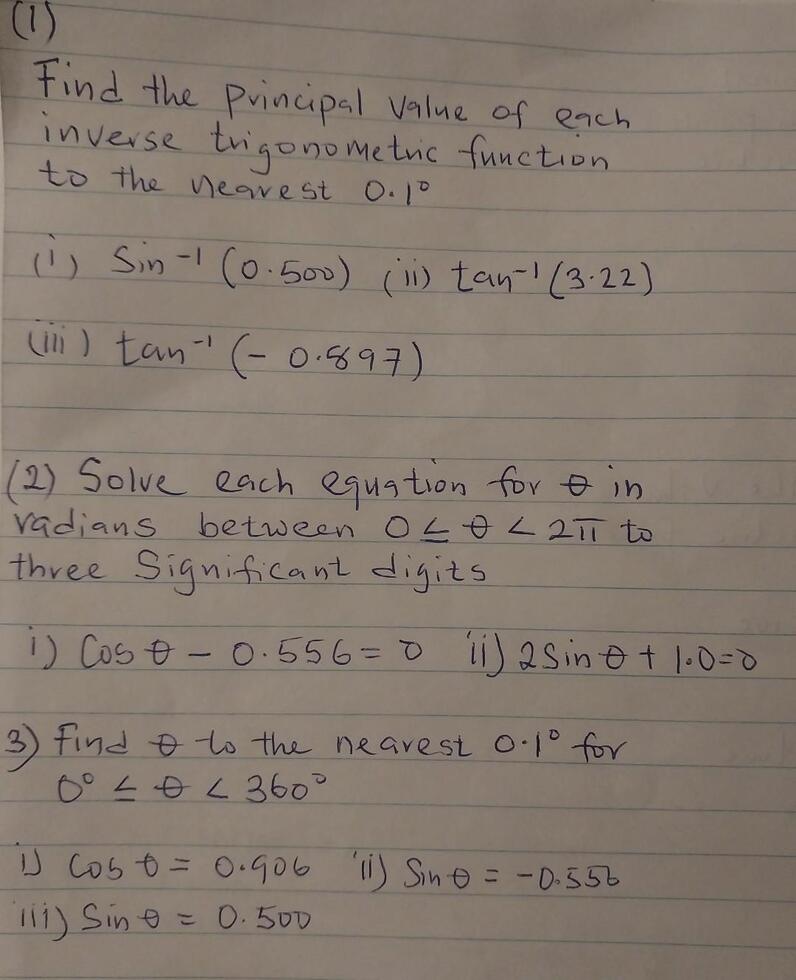 (1)
Find the principal value of each
inverse trigonometric function
to the nearest 0.1°
(i) Sin⁻¹ (0.500) (ii) tan⁻¹ (3.22)
(iii) tan⁻¹ (- 0.897)
(2) Solve each equation for θ in
radians between 0 ≤ θ < 2π to
three Significant digits
i) Cos θ - 0.556 = 0 ii) 2 Sin θ + 1.0=0
3) Find θ to the nearest 0.1° for
0° ≤ θ < 360°
i) Cos θ = 0.906 ii) Sin θ = -0.556
iii) Sin θ = 0.500